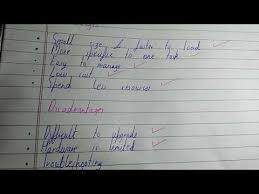 Small size & faster to load
More specific to one task
Easy to manage
Low cost
Spend less resources
Disadvantages
Difficult to upgrade
Hardware is limited
Troubleshooting